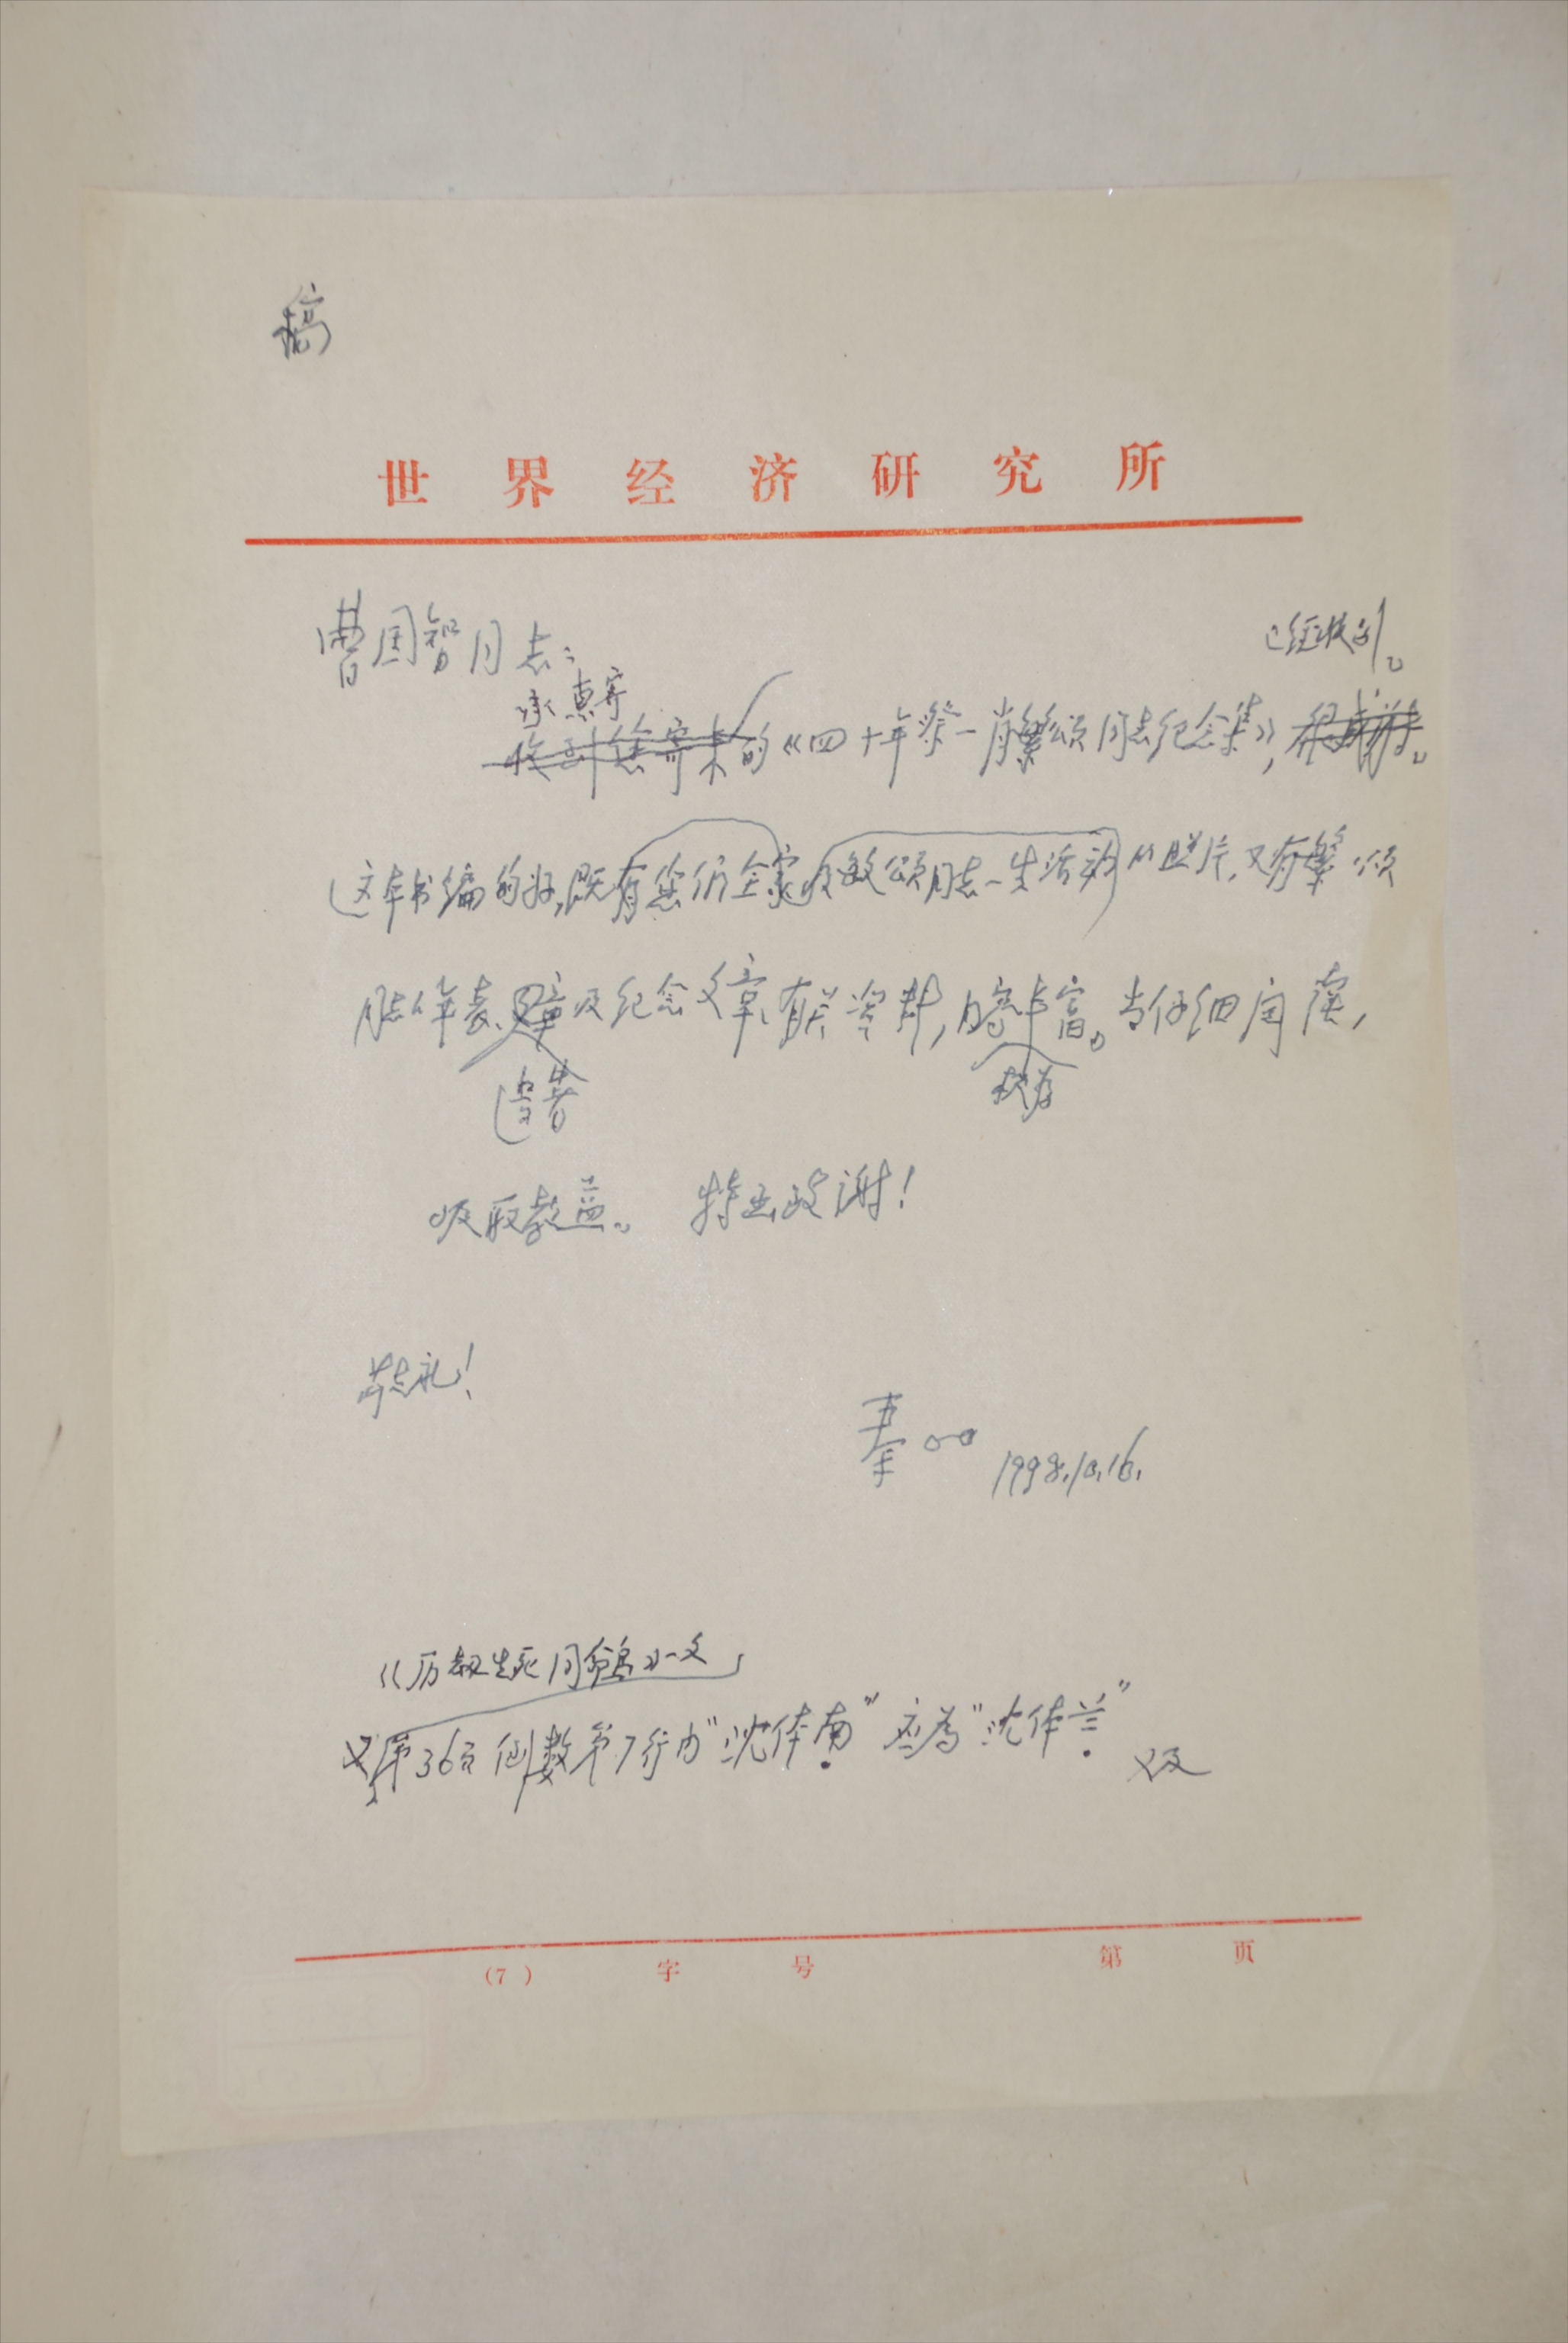 稿
世界经济研究所
曹国智同志:
已经收到。
承惠寄
收到您寄来的《四十年祭—肖繁颂同志纪念集》,很感谢。
这本书编的好,既有您们全家及敏颂同志一生活动的照片,又有繁颂
同志年表、及纪念文章、有关资料,内容丰富。当仔细阅读,
遗著
极为
吸取教益。 特函致谢!
敬礼!
秦○○ 1998.10.16.
《历数生死同命鸟》一文
又,第36页倒数第7行内“沈体南”应为“沈体兰”
又及
(7) 字 号 第 页